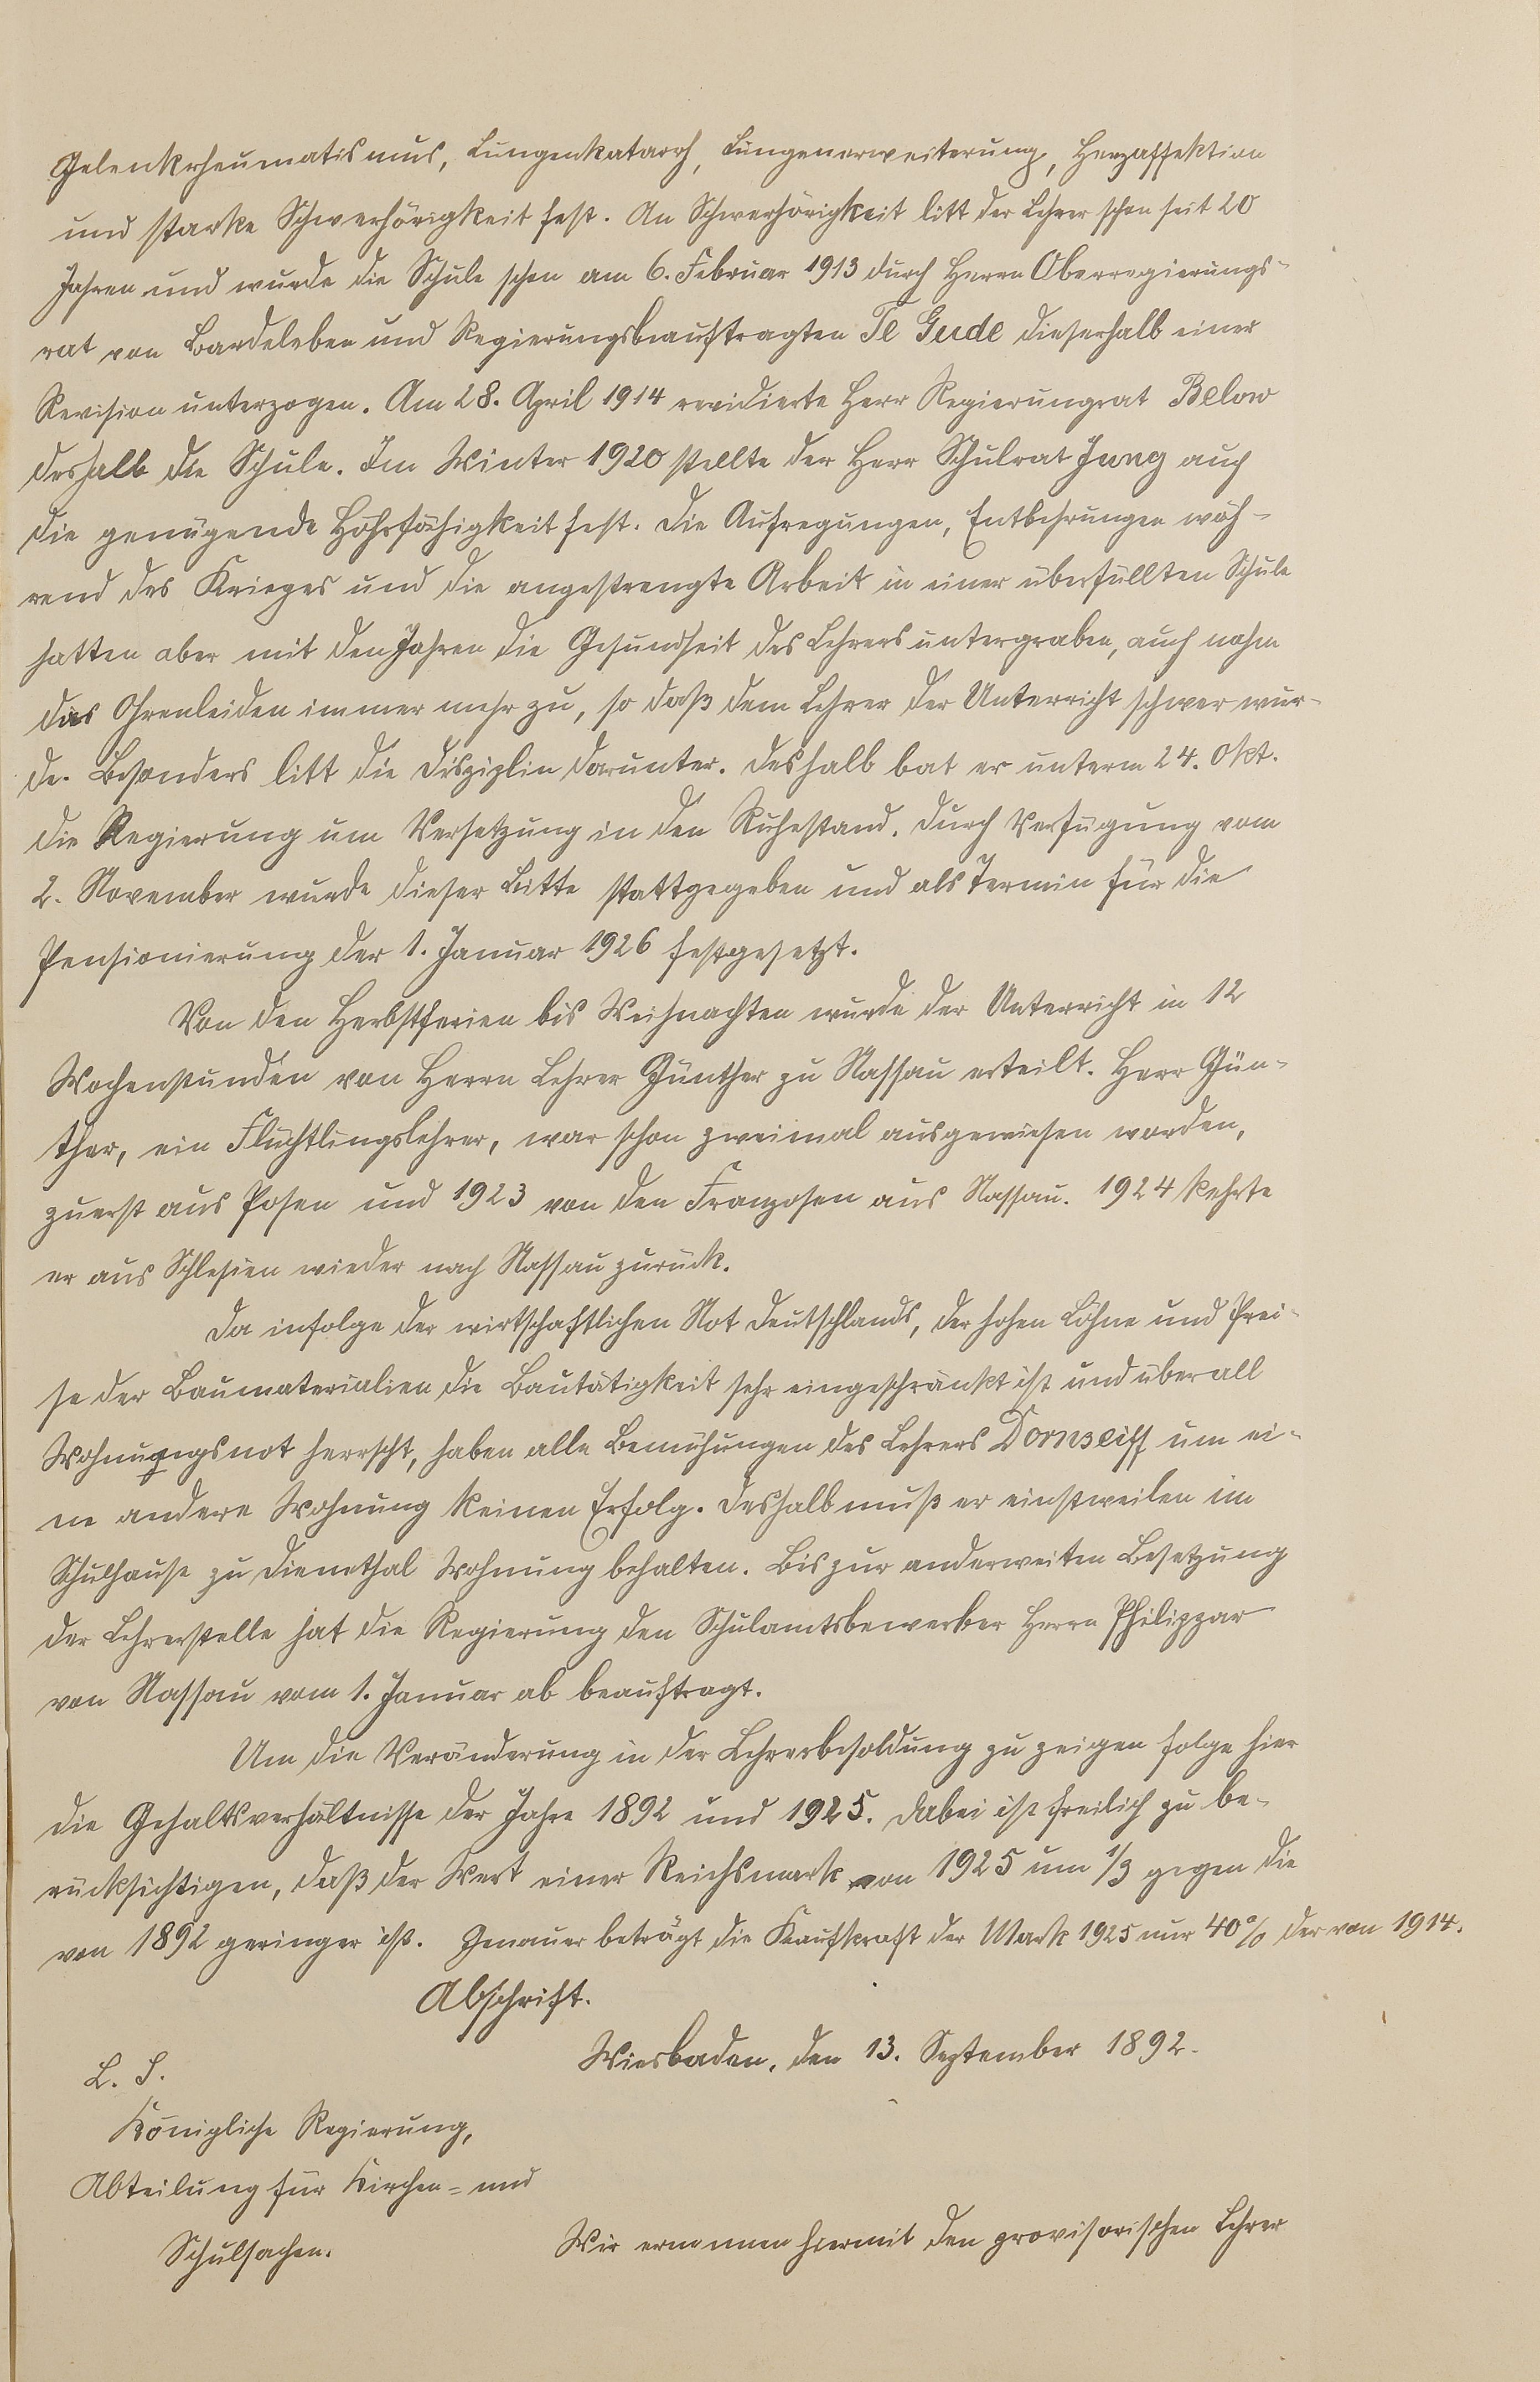 Gelenkrheumatismus, Lungenkatarrh, Lungenerweiterung, Herzaffektion
und starke Schwerhörigkeit fest. An Schwerhörigkeit litt der Lehrer schon seit 20
Jahren und wurde die Schule schon am 6. Februar 1913 durch Herrn Oberregierungs-
rat von Bardeleben und Regierungsbeauftragten Te Gude dieserhalb einer
Revision unterzogen. Am 28. April 1914 revidierte Herr Regierungrat Below
deshalb die Schule. Im Winter 1920 stellte der Herr Schulrat Jung auch
die genügende Höhrfähigkeit fest. Die Aufregungen, Entbehrungen wäh-
rend des Krieges und die angestrengte Arbeit in einer überfüllten Schule
hatten aber mit den Jahren die Gesundheit des Lehrers untergraben, auch nahm
das Ohrenleiden immer mehr zu, so daß dem Lehrer der Unterricht schwer wur-
de. Besonders litt die Disziplin darunter. Deshalb bat er unterm 24. Okt.
die Regierung um Versetzung in den Ruhestand. Durch Verfügung vom
2. November wurde dieser Bitte stattgegeben und als Termin für die
Pensionierung der 1. Januar 1926 festgesetzt.
Von den Herbstferien bis Weihnachten wurde der Unterricht in 12
Wochenstunden von Herrn Lehrer Günther zu Nassau erteilt. Herr Gün-
ther, ein Flüchtlingslehrer, war schon zweimal ausgewiesen worden,
zuerst aus Posen und 1923 von den Franzosen aus Nassau. 1924 kehrte
er aus Schlesien wieder nach Nassau zurück.
Da infolge der wirtschaftlichen Not Deutschlands, der hohen Löhne und Prei-
se der Baumaterialien die Bautätigkeit sehr eingeschränkt ist und überall
Wohnungsnot herrscht, haben alle Bemühungen des Lehrers Dornseiff um ei-
ne andere Wohnung keinen Erfolg. Deshalb muß er einstweilen im
Schulhause zu Dienethal Wohnung behalten. Bis zur anderweiten Besetzung
der Lehrerstelle hat die Regierung den Schulamtsbewerber Herrn Philippar
von Nassau vom 1. Januar ab beauftragt.
Um die Veränderung in der Lehrerbesoldung zu zeigen folge hier
die Gehaltsverhältnisse der Jahre 1892 und 1925. Dabei ist freilich zu be-
rücksichtigen, daß der Wert einer Reichsmark von 1925 um 1/3 gegen die
von 1892 geringer ist. Genauer beträgt die Kaufkraft der Mark 1925 nur 40% der von 1914.
Abschrift.
Wiesbaden, den 13. September 1892.
L. S.
Königliche Regierung,
Abteilung für Kirchen- und
Schulsachen.
Wir ernennen hiermit den provisorischen Lehrer